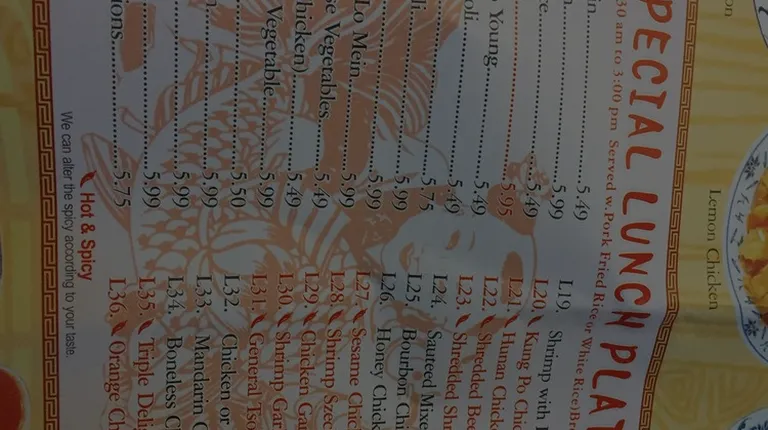 PECIAL LUNCH PLAT
30 am to 3:00 pm Served w. Pork Fried Rice or White Rice) Br
in..........5.49
n..........5.99
re..........5.49
..........5.95
Young..........5.49
oli..........5.49
..........5.75
li..........5.99
..........5.99
Lo Mein..........5.99
se Vegetables..........5.49
hicken)..........5.49
Vegetable..........5.99
..........5.50
n..........5.99
..........5.99
..........5.99
ions..........5.75
L19. Shrimp with
L20. Kung Po Chic
L21. Hunan Chick
L22. Shredded Bee
L23. Shredded Shr
L24. Sauteed Mixe
L25. Bourbon Chi
L26. Honey Chick
L27. Sesame Chic
L28. Shrimp Szec
L29. Chicken Gar
L30. Shrimp Gar
L31. General Tso
L32. Chicken or
L33. Mandarin C
L34. Boneless C
L35. Triple Deli
L36. Orange Ch
Hot & Spicy
We can alter the spicy according to your taste.
Lemon Chicken
on